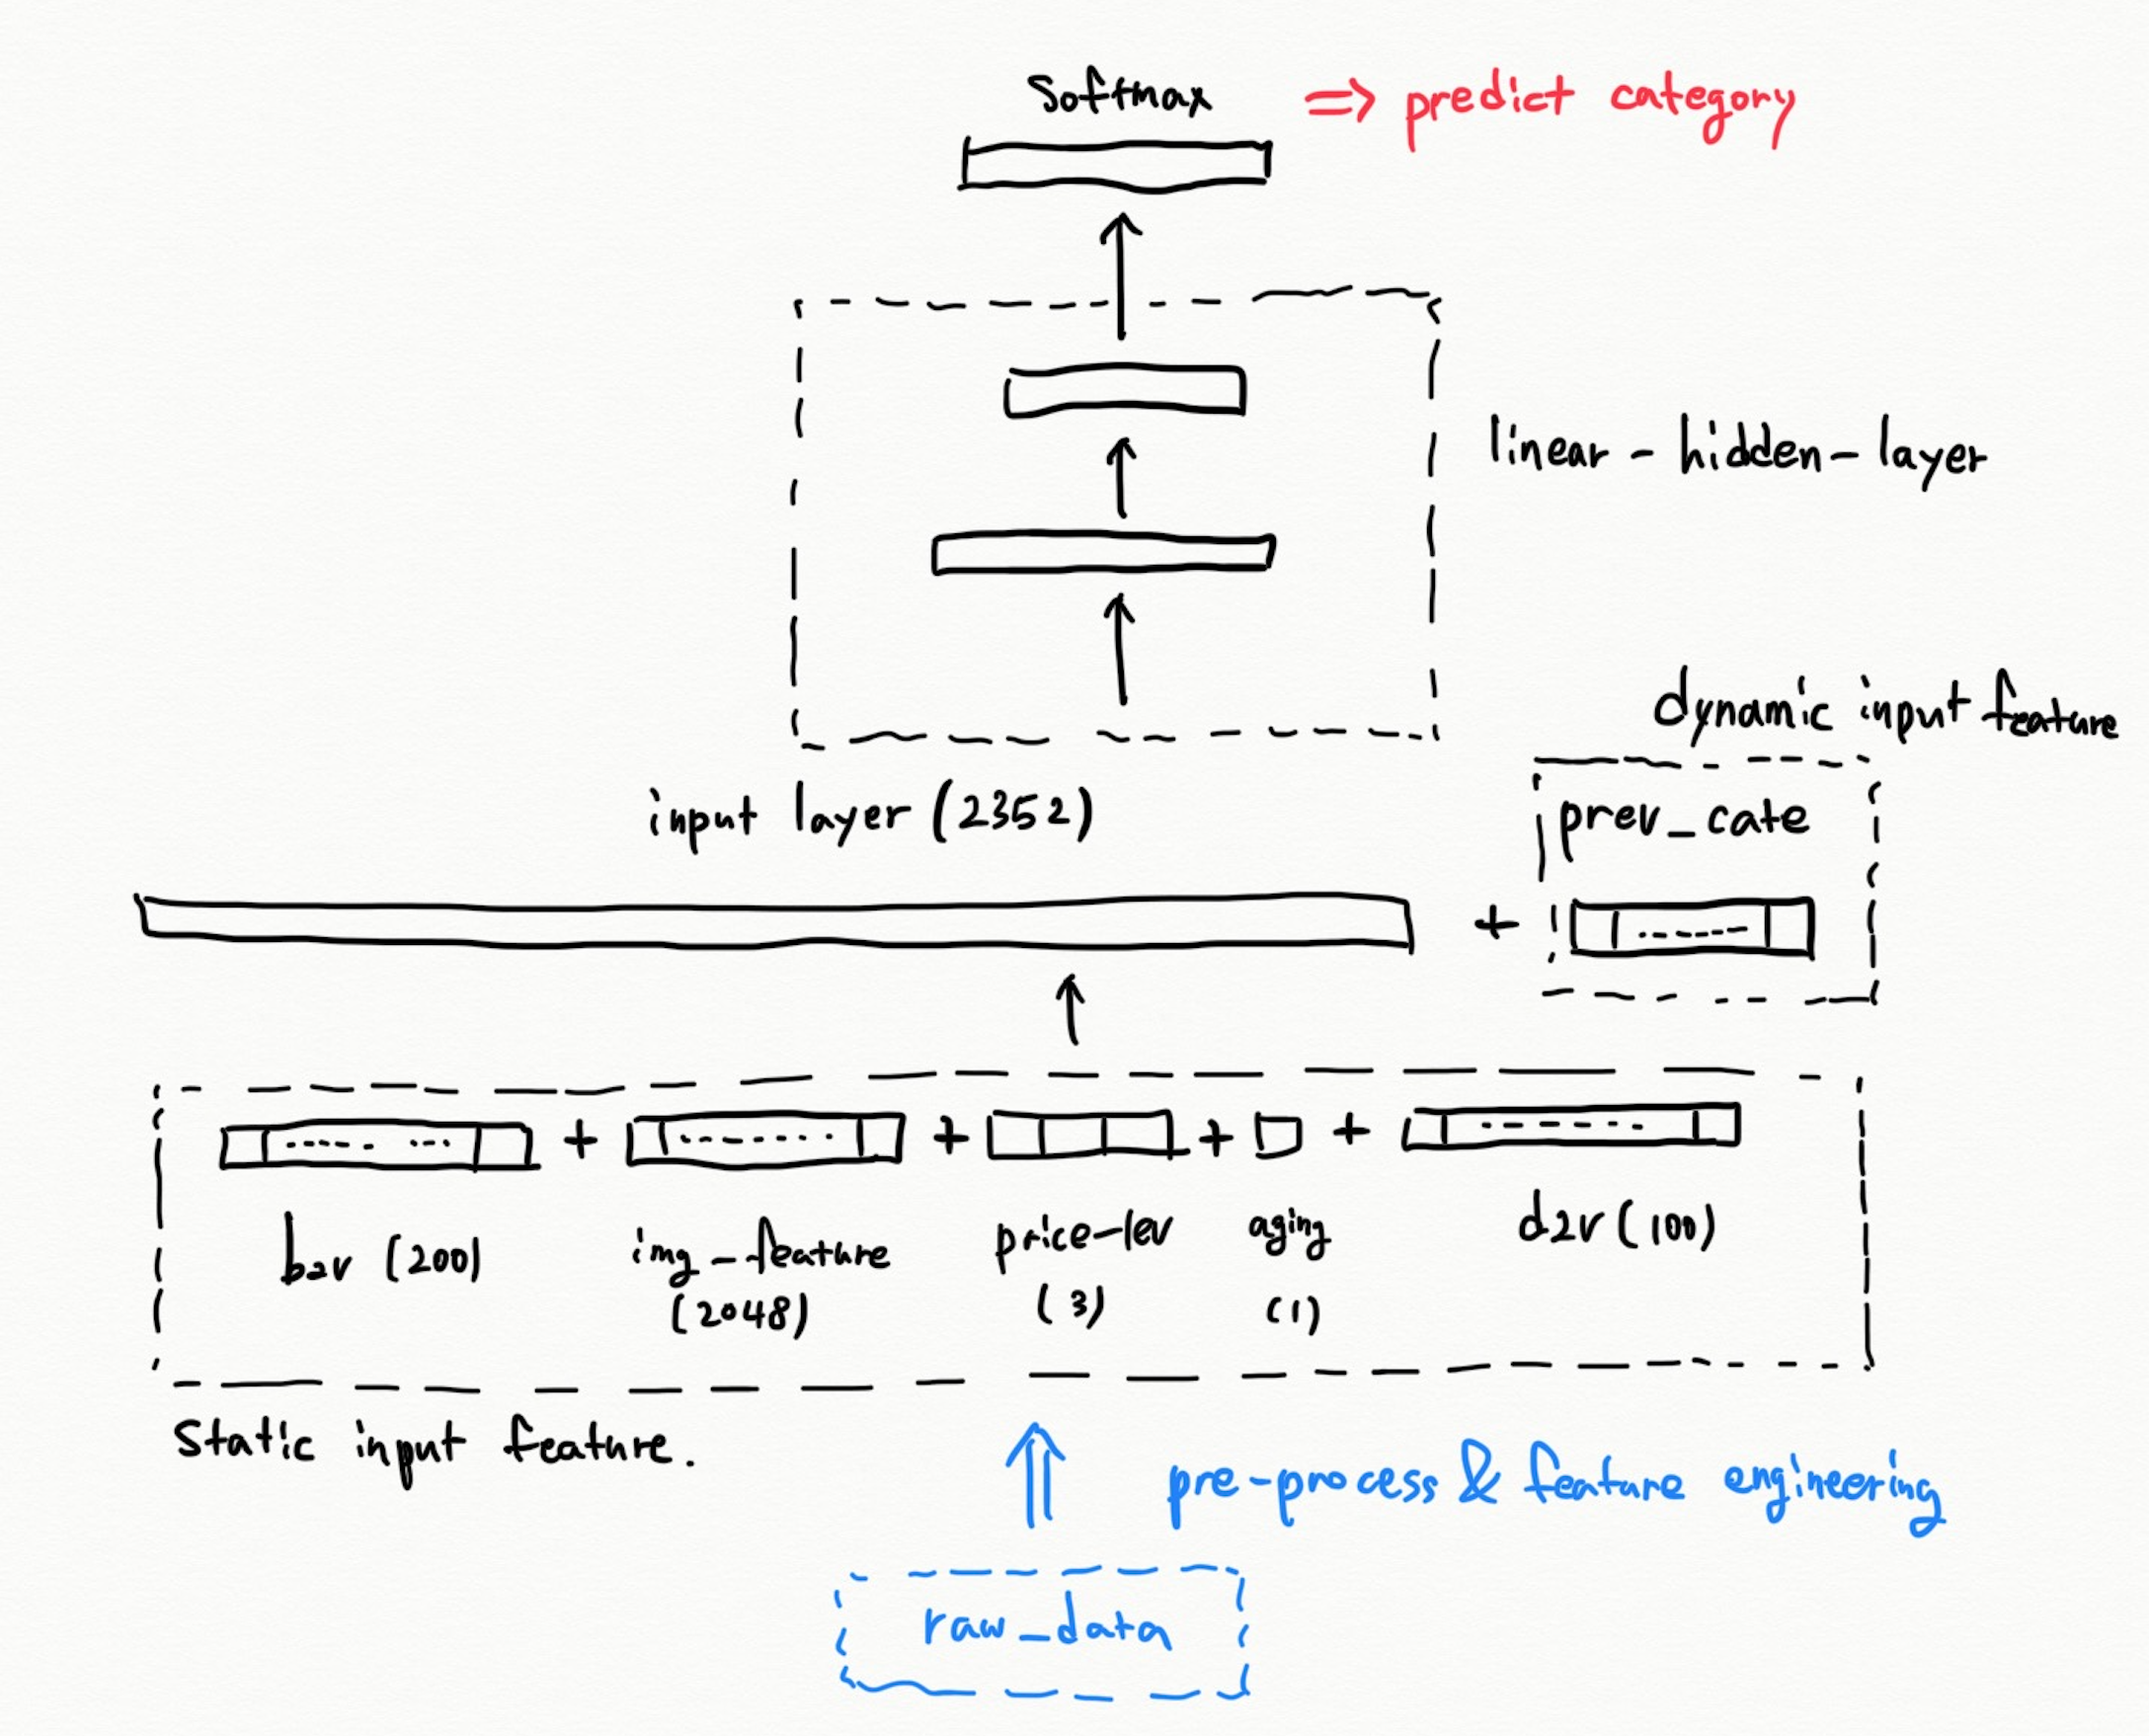 Softmax => predict category
linear-hidden-layer
dynamic input feature
input layer (2352)
prev_cate
+
+ + + +
b2v (200)
img_feature
(2048)
price-lev
(3)
aging
(1)
d2v (100)
Static input feature.
pre-process & feature engineering
raw_data